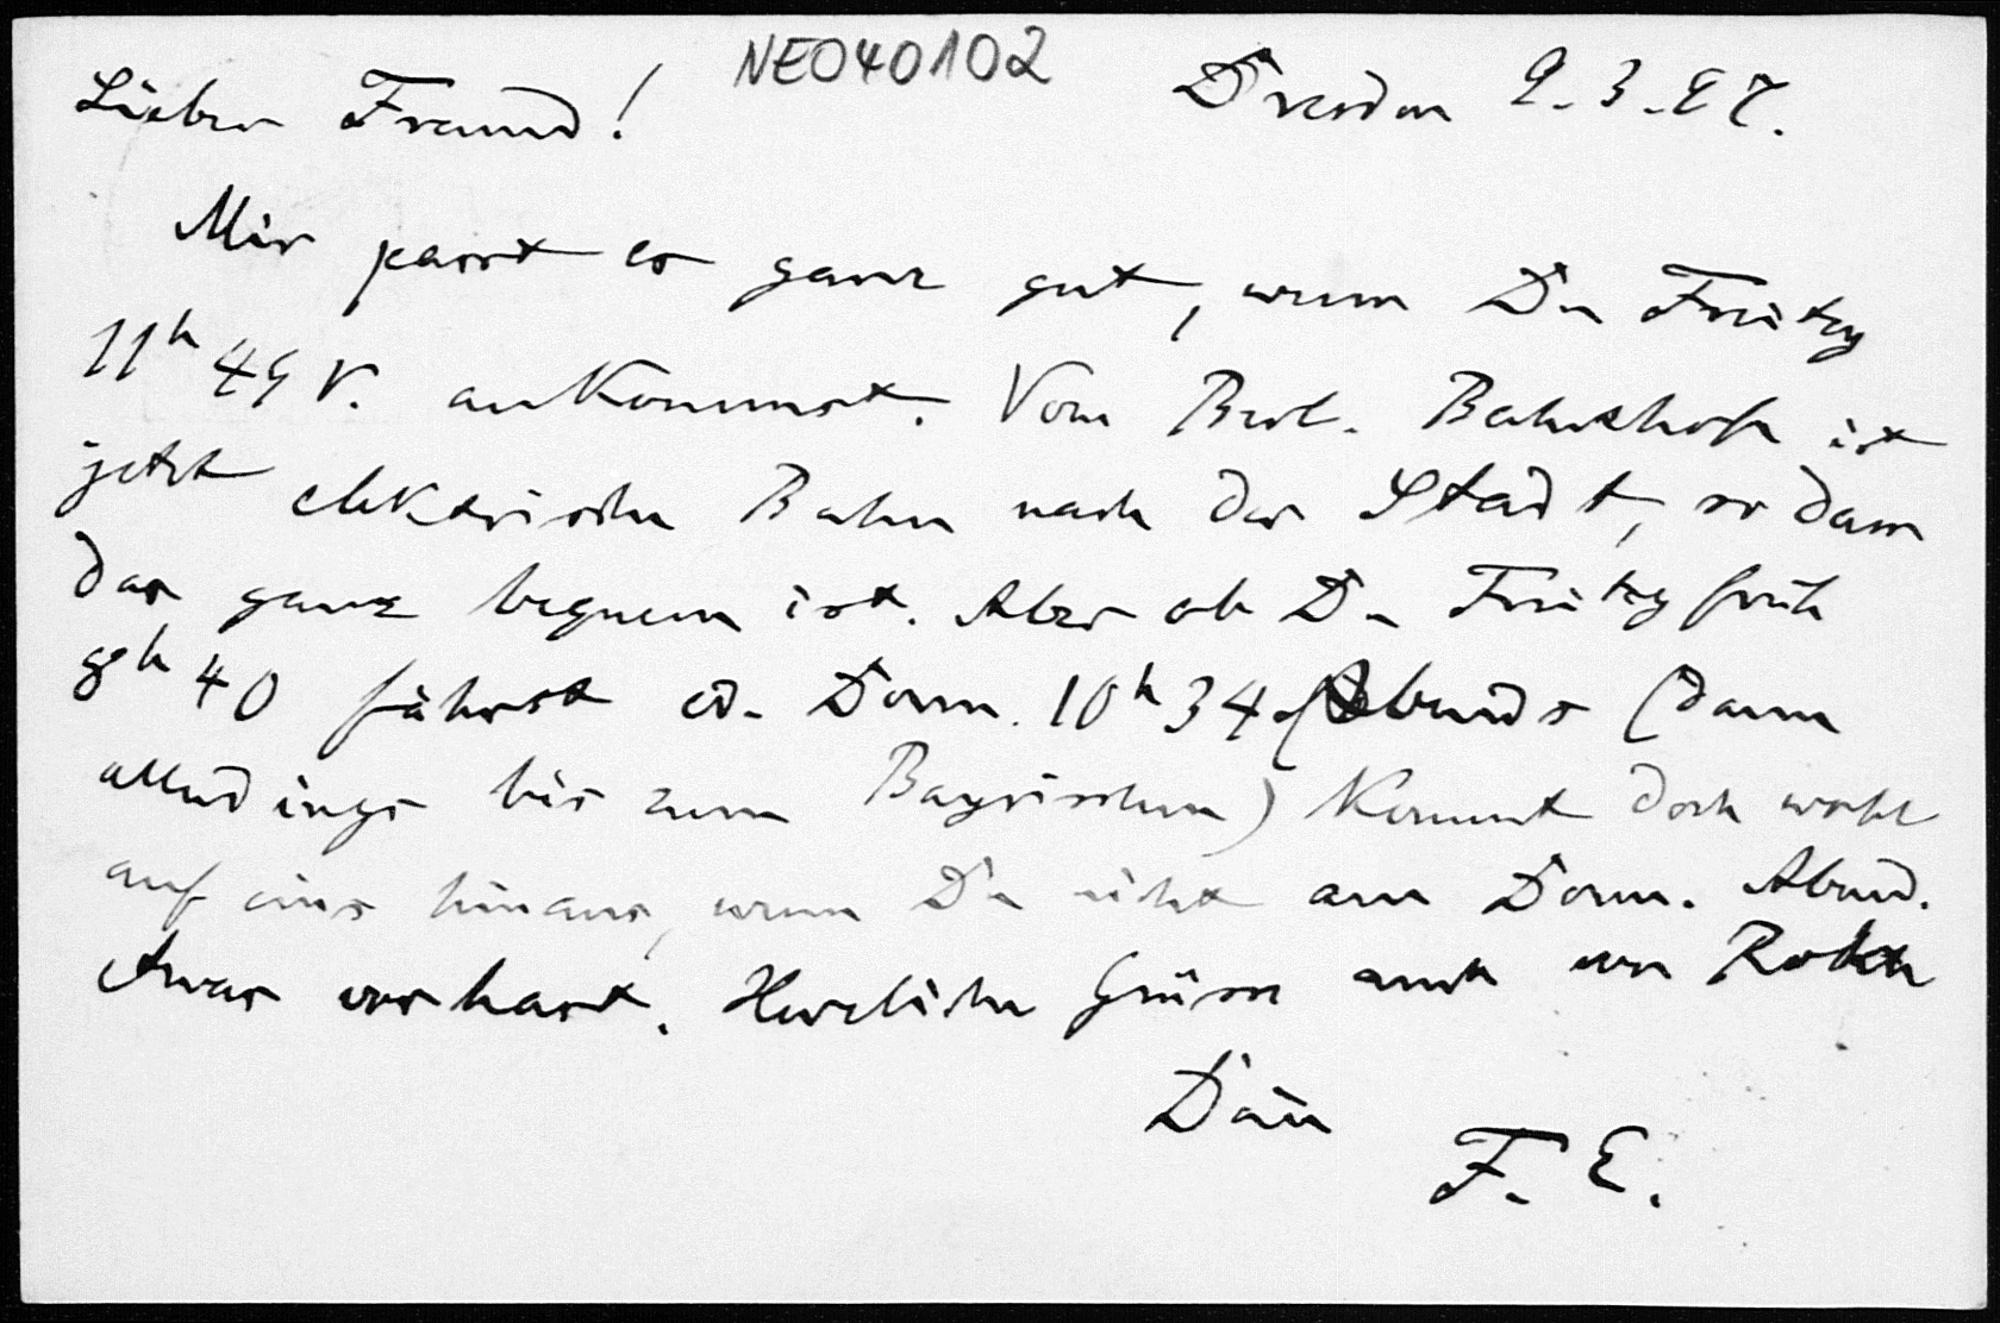 NE040102
Lieber Freund! Dresden 9.3.97.
Mir passt es ganz gut, wenn Du Freitag
11h 49 V. ankommst. Vom Berl. Bahnhofe ist
jetzt elektrische Bahn nach der Stadt, so dass
das ganz bequem ist. Aber ob Du Freitag früh
8h 40 fährst od. Donn. 10h 34 Abends (dann
allerdings bis zum Bayrischen) kommt doch wohl
auf eins hinaus, wenn Du nicht am Donn. Abend.
etwas vorhast. Herzliche Grüsse auch von
Dein
F. E.